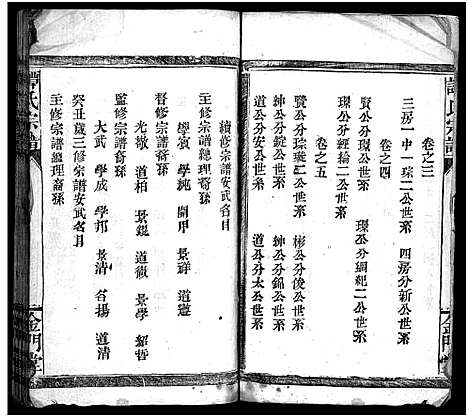 譚氏宗譜
卷之三
三房一中一琮二公世系 四房分新公世系
卷之四
賢公分琮璣二公世系 彬公分俊公世系
琛公分經綸二公世系 琛公分綱紀二公世系
卷之五
紳公分錠公世系 紳公分錦公世系
道公分安公世系 道公分太公世系
金門堂
譚氏宗譜
續修宗譜安武名目
主修宗譜總理裔孫
學賓 學純 開甲 景祥 道憲
督修宗譜裔孫
光徽 道柏 景鑑 道徽 景學 紹哲
監修宗譜裔孫
大武 學成 學邦 景清 名揚 道清
癸丑歲三修宗譜安武名目
主修宗譜總理裔孫
金門堂